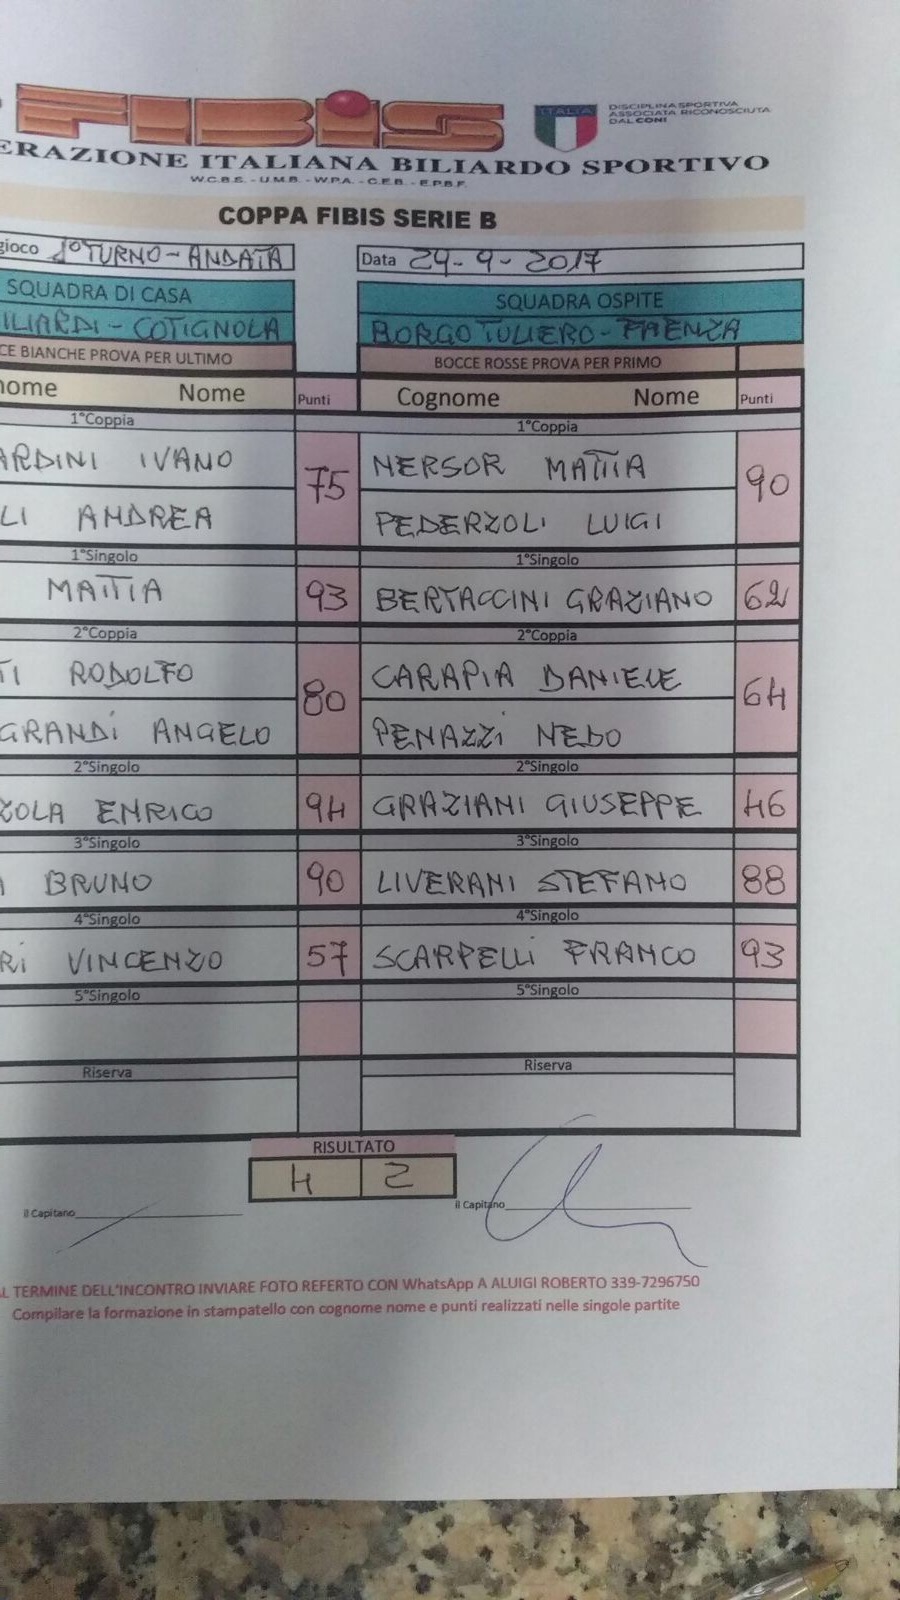 FIBiS
ITALIA
DISCIPLINA SPORTIVA
ASSOCIATA RICONOSCIUTA
DAL CONI
ERAZIONE ITALIANA BILIARDO SPORTIVO
W.C.B.S. - U.M.B. - W.P.A. - C.E.B. - E.P.B.F.
COPPA FIBIS SERIE B
gioco 1° TURNO - ANDATA Data 29-9-2017
SQUADRA DI CASA SQUADRA OSPITE
ILIARDI - COTIGNOLA BORGO TULIERO - FAENZA
CE BIANCHE PROVA PER ULTIMO BOCCE ROSSE PROVA PER PRIMO
nome Nome Punti Cognome Nome Punti
1°Coppia 1°Coppia
ARDINI IVANO 75 NERSOR MATTIA 90
LI ANDREA PEDERZOLI LUIGI
1°Singolo 1°Singolo
MATTIA 93 BERTACCINI GRAZIANO 62
2°Coppia 2°Coppia
TI RODOLFO 80 CARAPIA DANIELE 64
GRANDI ANGELO PENAZZI NEDO
2°Singolo 2°Singolo
ZOLA ENRICO 94 GRAZIANI GIUSEPPE 46
3°Singolo 3°Singolo
BRUNO 90 LIVERANI STEFANO 88
4°Singolo 4°Singolo
RI VINCENZO 57 SCARPELLI FRANCO 93
5°Singolo 5°Singolo
Riserva Riserva
RISULTATO
4 2
il Capitano il Capitano
AL TERMINE DELL'INCONTRO INVIARE FOTO REFERTO CON WhatsApp A ALUIGI ROBERTO 339-7296750
Compilare la formazione in stampatello con cognome nome e punti realizzati nelle singole partite